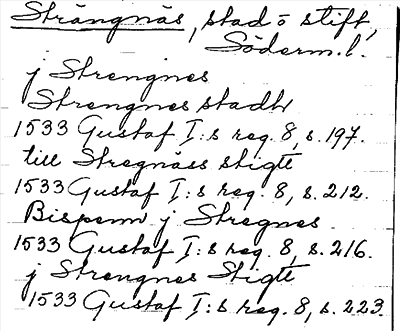 Strängnäs, stad o stift,
Söderm. l.
j Strengnes
Strengnes stadh
1533 Gustaf I:s reg. 8, s. 197.
till Stregnäss stigtt
1533 Gustaf I:s reg. 8, s. 212.
Bispenn j Stregnes
1533 Gustaf I:s reg. 8, s. 216.
j Strengnes Stigtt
1533 Gustaf I:s reg. 8, s. 223.